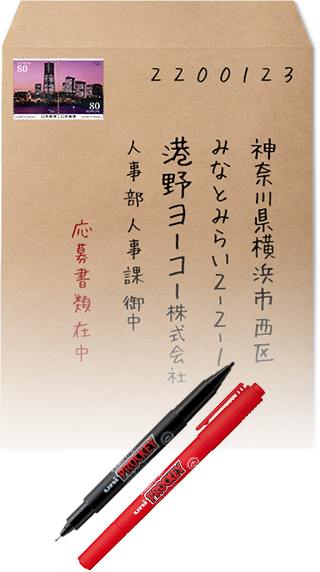 2200123
神奈川県横浜市西区
みなとみらい2-2-1
港野ヨーコー株式会社
人事部人事課御中
応募書類在中
80
80
uni PROCKEY
uni PROCKEY